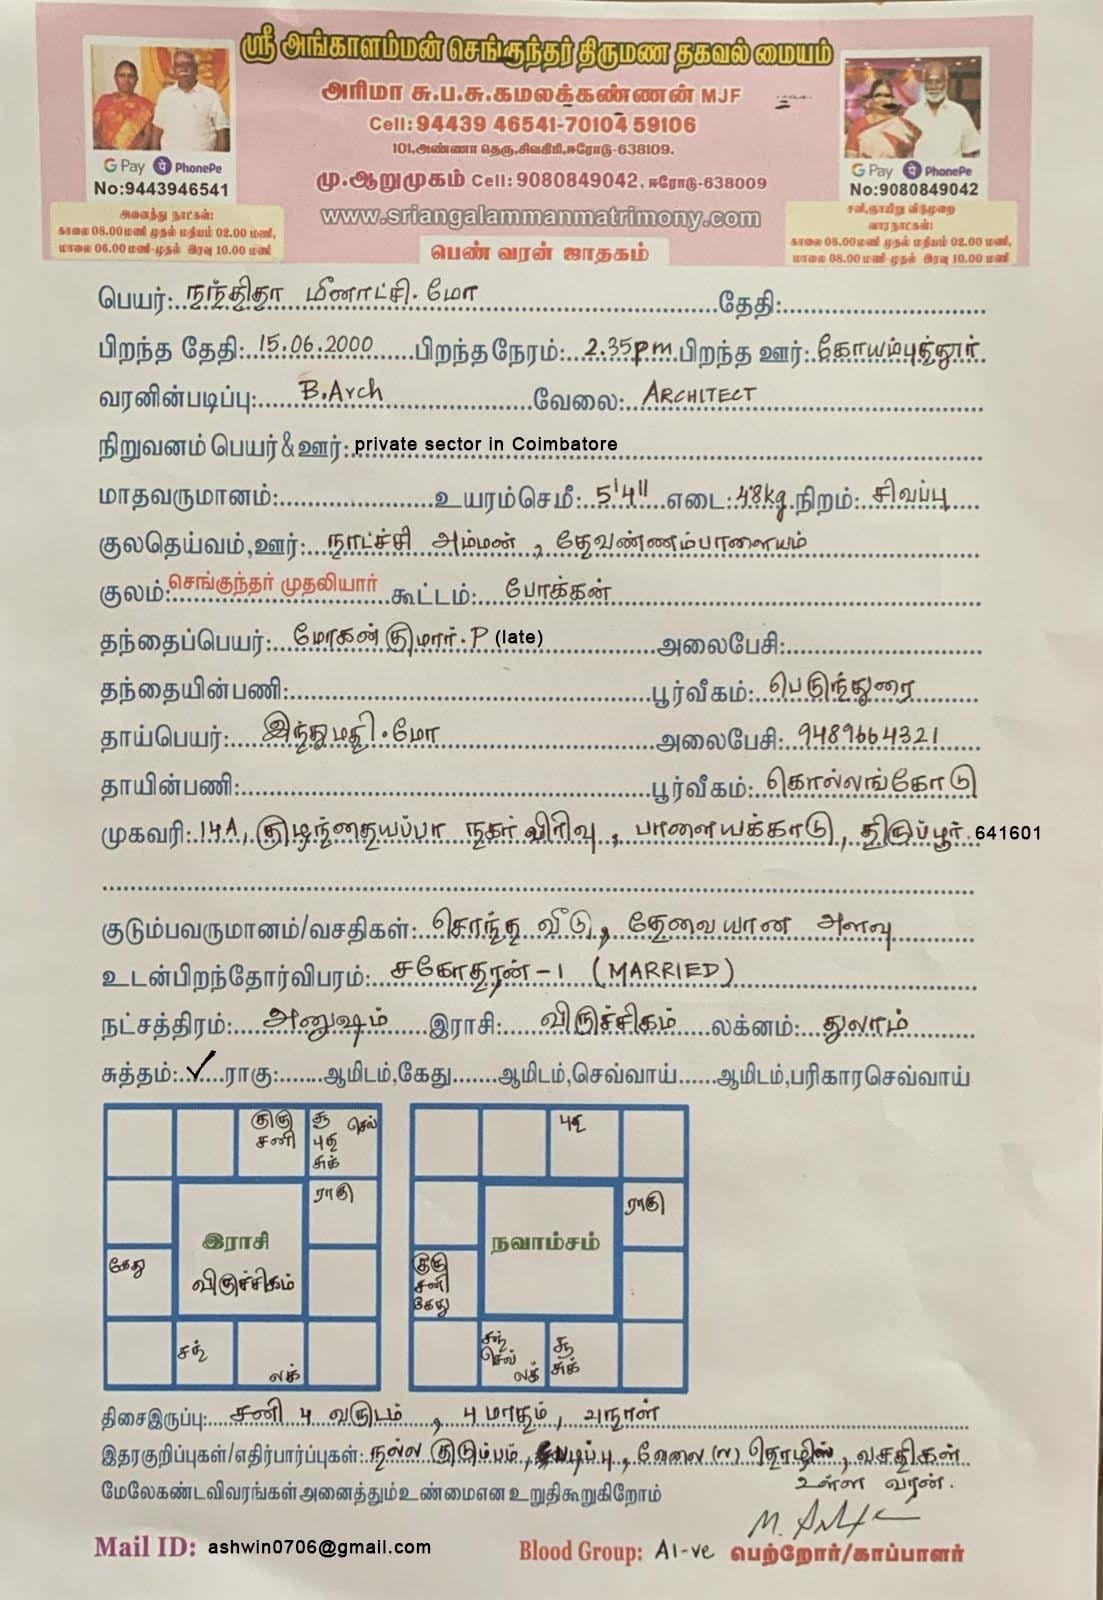 ஸ்ரீ அங்காளம்மன் செங்குந்தர் திருமண தகவல் மையம்
அரிமா சு.ப.சு.கமலக்கண்ணன் MJF
Cell:94439 46541-70104 59106
101,அண்ணா தெரு,சிவகிரி,ஈரோடு-638109.
மு.ஆறுமுகம் Cell: 9080849042, ஈரோடு-638009
www.sriangalammanmatrimony.com
G Pay PhonePe
No:9443946541
அனைத்து நாட்கள்:
காலை 08.00மணி முதல் மதியம் 02.00 மணி,
மாலை 06.00 மணி-முதல் இரவு 10.00 மணி
G Pay PhonePe
No:9080849042
சனி,ஞாயிறு விடுமுறை
வாரநாட்கள்:
காலை 08.00மணி முதல் மதியம் 02.00 மணி,
மாலை 08.00 மணி-முதல் இரவு 10.00 மணி
பெண் வரன் ஜாதகம்
பெயர்: நந்திதா மீனாட்சி.மோ தேதி:
பிறந்த தேதி: 15.06.2000 பிறந்தநேரம்: 2.35pm பிறந்த ஊர்: கோயம்புத்தூர்
வரனின்படிப்பு: B.Arch வேலை: ARCHITECT
நிறுவனம் பெயர்&ஊர்: private sector in Coimbatore
மாதவருமானம்: உயரம்செமீ: 5'4" எடை: 48kg நிறம்: சிவப்பு
குலதெய்வம்,ஊர்: நாட்ச்சி அம்மன், தேவண்ணம்பாளையம்
குலம்: செங்குந்தர் முதலியார் கூட்டம்: போக்கன்
தந்தைப்பெயர்: மோகன்குமார்.P (late) அலைபேசி:
தந்தையின்பணி: பூர்வீகம்: பெருந்துரை
தாய்பெயர்: இந்துமதி.மோ அலைபேசி: 9489664321
தாயின்பணி: பூர்வீகம்: கொல்லங்கோடு
முகவரி: 14A, குழந்தையப்பா நகர் விரிவு, பாளையக்காடு, திருப்பூர். 641601
குடும்பவருமானம்/வசதிகள்: சொந்த வீடு, தேவையான அளவு
உடன்பிறந்தோர்விபரம்: சகோதரன் - 1 (MARRIED)
நட்சத்திரம்: அனுஷம் இராசி: விருச்சிகம் லக்னம்: துலாம்
சுத்தம்: ✓ ராகு: ஆமிடம்,கேது ஆமிடம்,செவ்வாய் ஆமிடம்,பரிகாரசெவ்வாய்
குரு சனி
சூ செல் புத சுக்
ராகு
இராசி
விருச்சிகம்
கேது
சந்
லக்
புத
ராகு
நவாம்சம்
குரு சனி கேது
சந் செல் லக்
சூ சுக்
திசைஇருப்பு: சனி 4 வருடம், 4 மாதம், 2நாள்
இதரகுறிப்புகள்/எதிர்பார்ப்புகள்: நல்ல குடும்பம், படிப்பு, வேலை (or) தொழில், வசதிகள்
உள்ள வரன்.
மேலேகண்டவிவரங்கள்அனைத்தும்உண்மைஎன உறுதிகூறுகிறோம்
Mail ID: ashwin0706@gmail.com Blood Group: A1-ve பெற்றோர்/காப்பாளர்